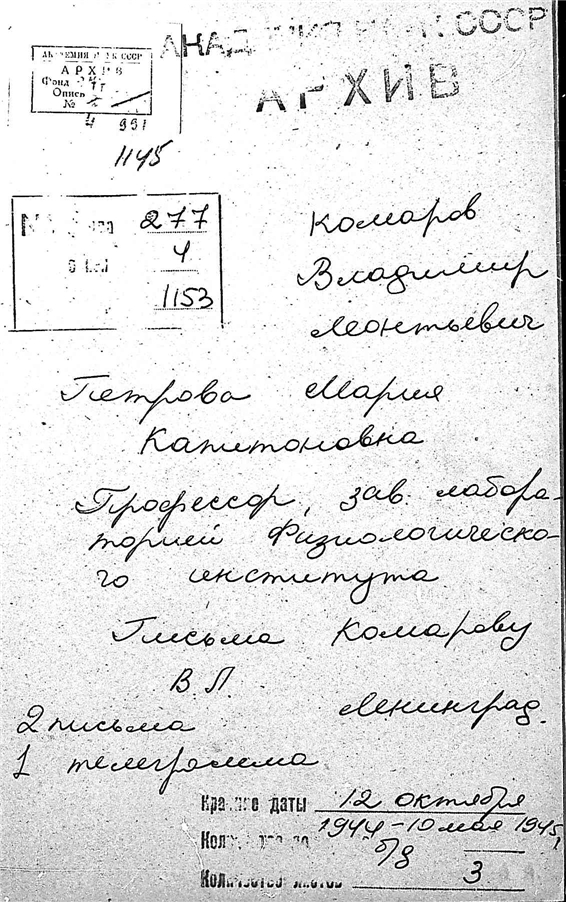 АКАДЕМИЯ НАУК СССР
АРХИВ
АКАДЕМИЯ НАУК СССР
АРХИВ
Фонд
Опись
№
4 991
1145
№ фонда 277
4
1153
Комаров
Владимир
Леонтьевич
Петрова Мария
Капитоновна
Профессор, зав. лабора-
торией Физиологическо-
го института
Письма Комарову
В.Л.
Ленинград.
2 письма
1 телеграмма
Крайние даты 12 октября
1944 – 10 мая 1945,
б/д
Количество листов 3